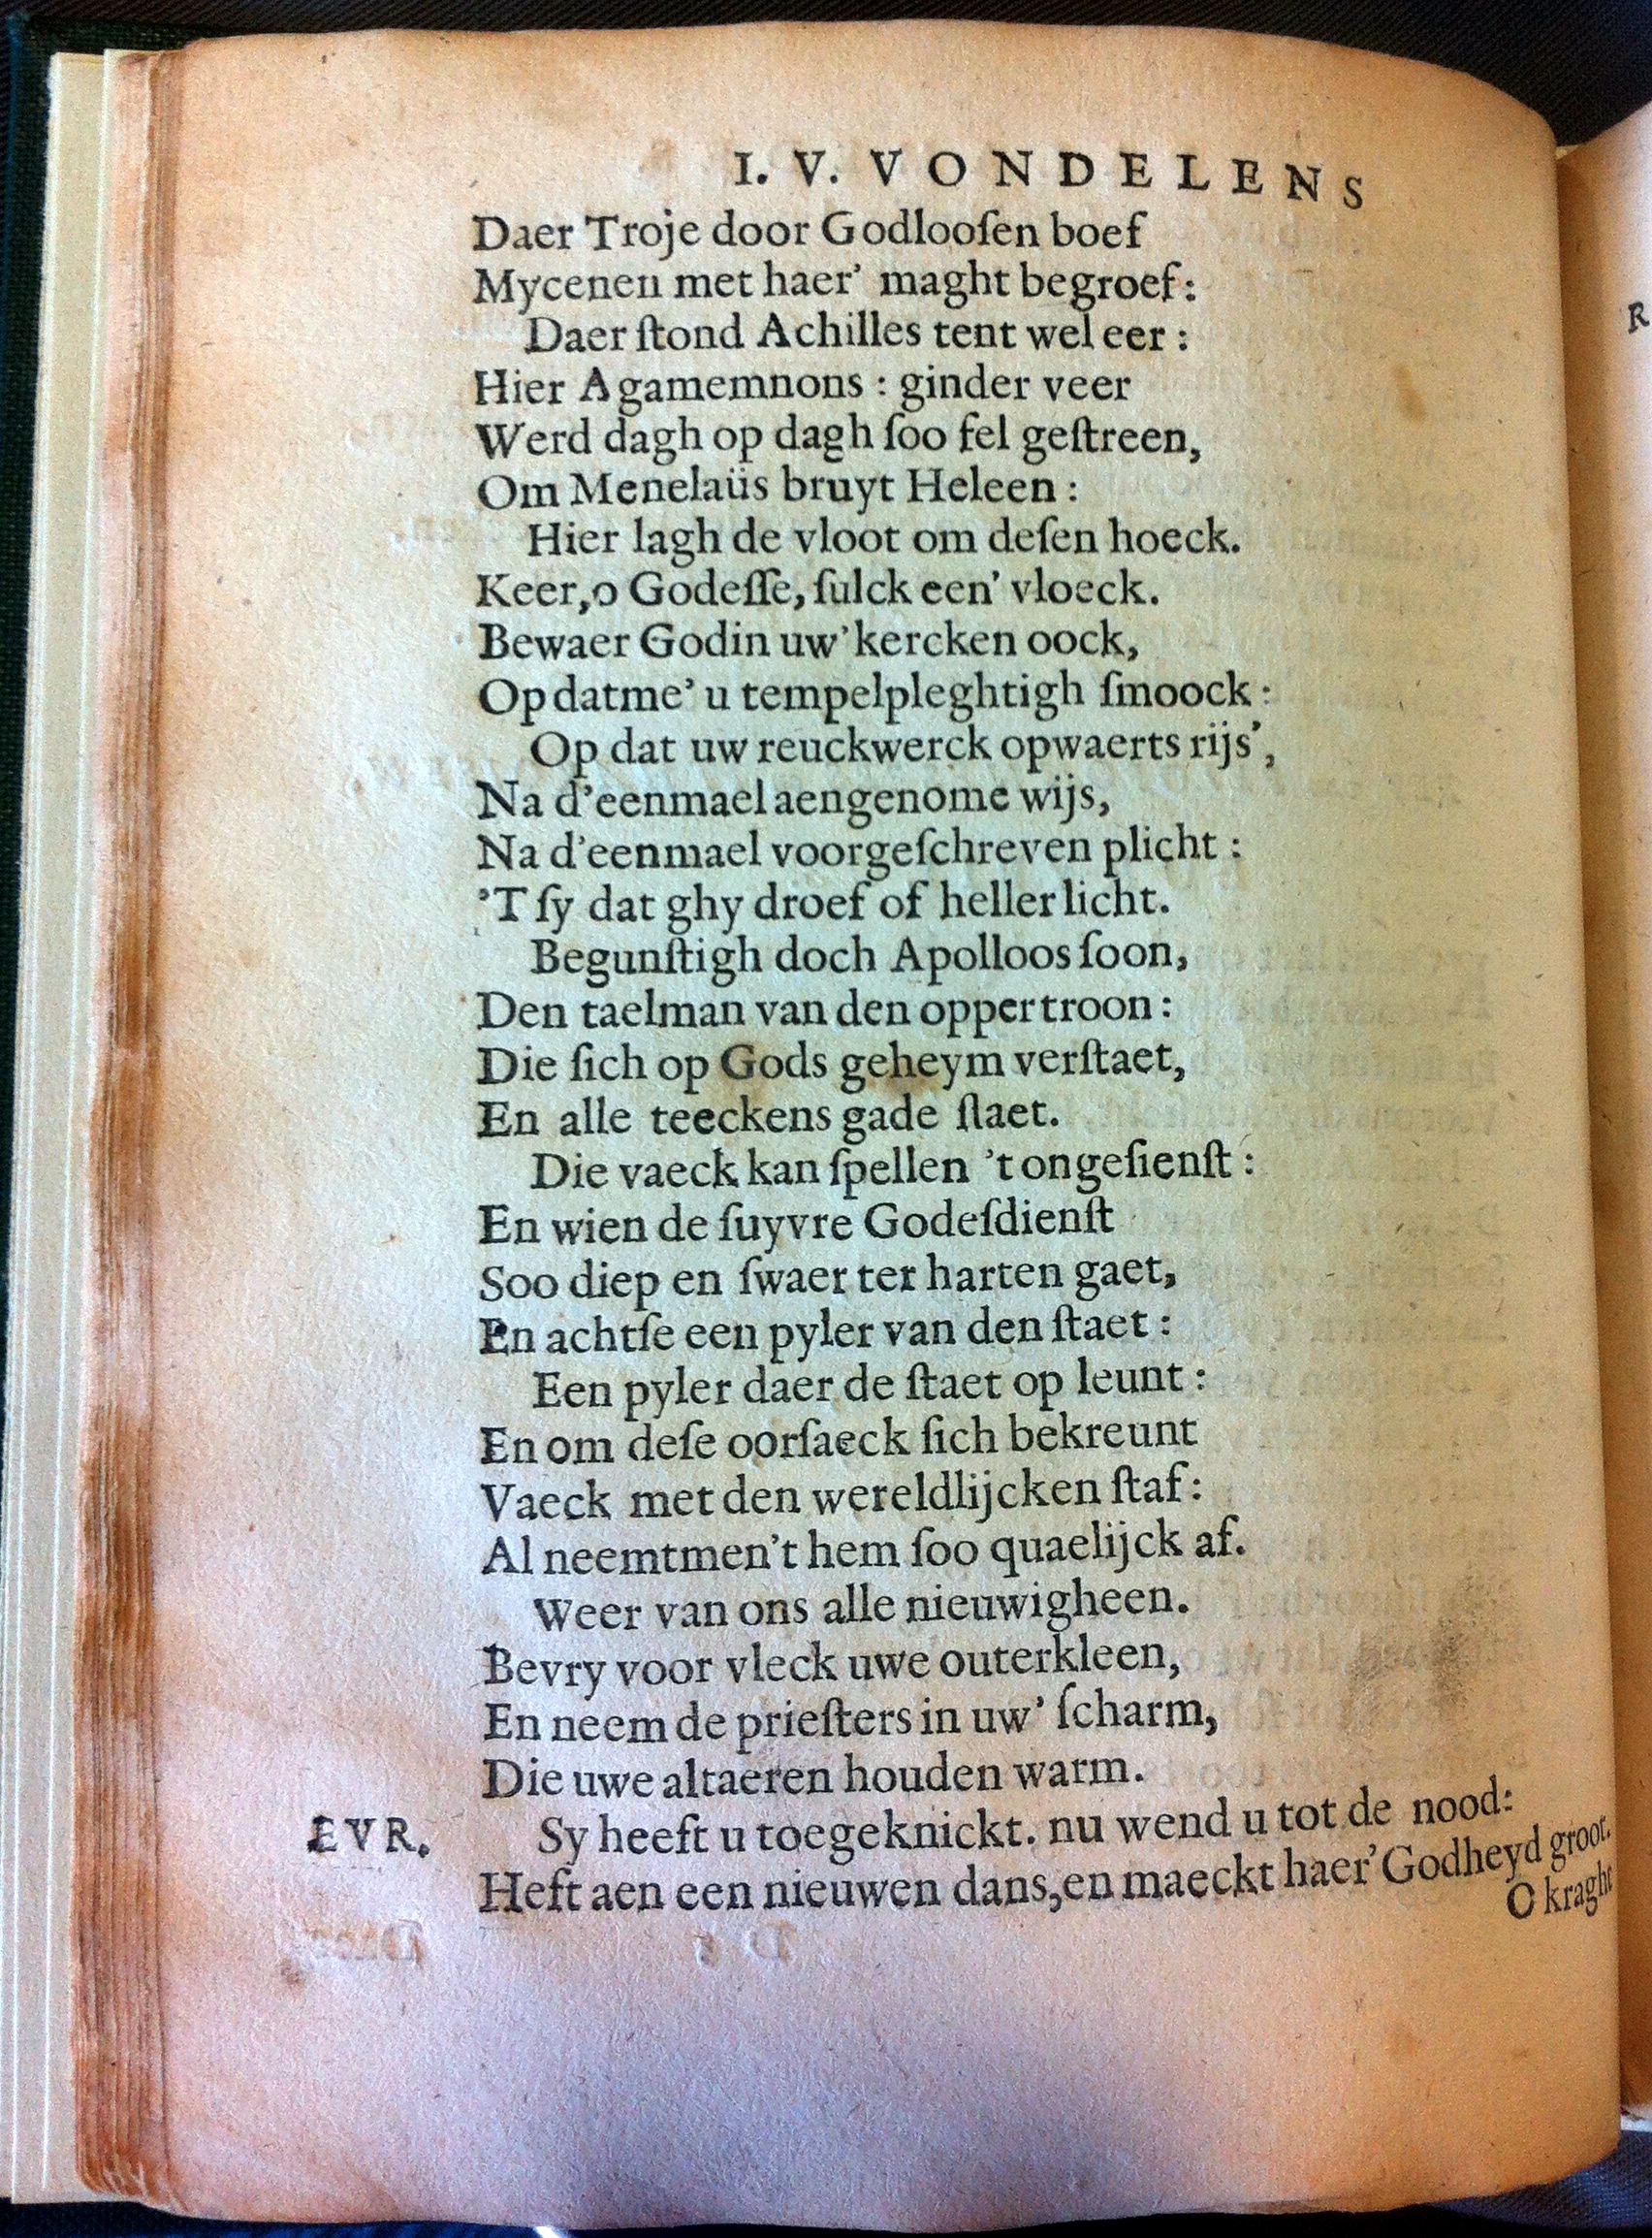 I. V. VONDELENS
Daer Troje door Godlooſen boef
Mycenen met haer' maght begroef:
Daer ſtond Achilles tent wel eer :
Hier Agamemnons : ginder veer
Werd dagh op dagh ſoo fel geſtreen,
Om Menelaüs bruyt Heleen :
Hier lagh de vloot om deſen hoeck.
Keer, o Godeſſe, ſulck een' vloeck.
Bewaer Godin uw' kercken oock,
Op datme' u tempelpleghtigh ſmoock :
Op dat uw reuckwerck opwaerts rijs',
Na d'eenmael aengenome wijs,
Na d'eenmael voorgeſchreven plicht :
'T ſy dat ghy droef of heller licht.
Begunſtigh doch Apolloos ſoon,
Den taelman van den oppertroon :
Die ſich op Gods geheym verſtaet,
En alle teeckens gade ſlaet.
Die vaeck kan ſpellen 't ongeſienſt :
En wien de ſuyvre Godeſdienſt
Soo diep en ſwaer ter harten gaet,
En achtſe een pyler van den ſtaet :
Een pyler daer de ſtaet op leunt :
En om deſe oorſaeck ſich bekreunt
Vaeck met den wereldlijcken ſtaf:
Al neemtmen't hem ſoo quaelijck af.
Weer van ons alle nieuwigheen.
Bevry voor vleck uwe outerkleen,
En neem de prieſters in uw' ſcharm,
Die uwe altaeren houden warm.
EVR. Sy heeft u toegeknickt. nu wend u tot de nood:
Heft aen een nieuwen dans, en maeckt haer' Godheyd groot.
O kraght
R